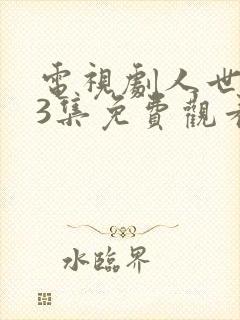 電視劇人世
3集免費觀看
水臨界